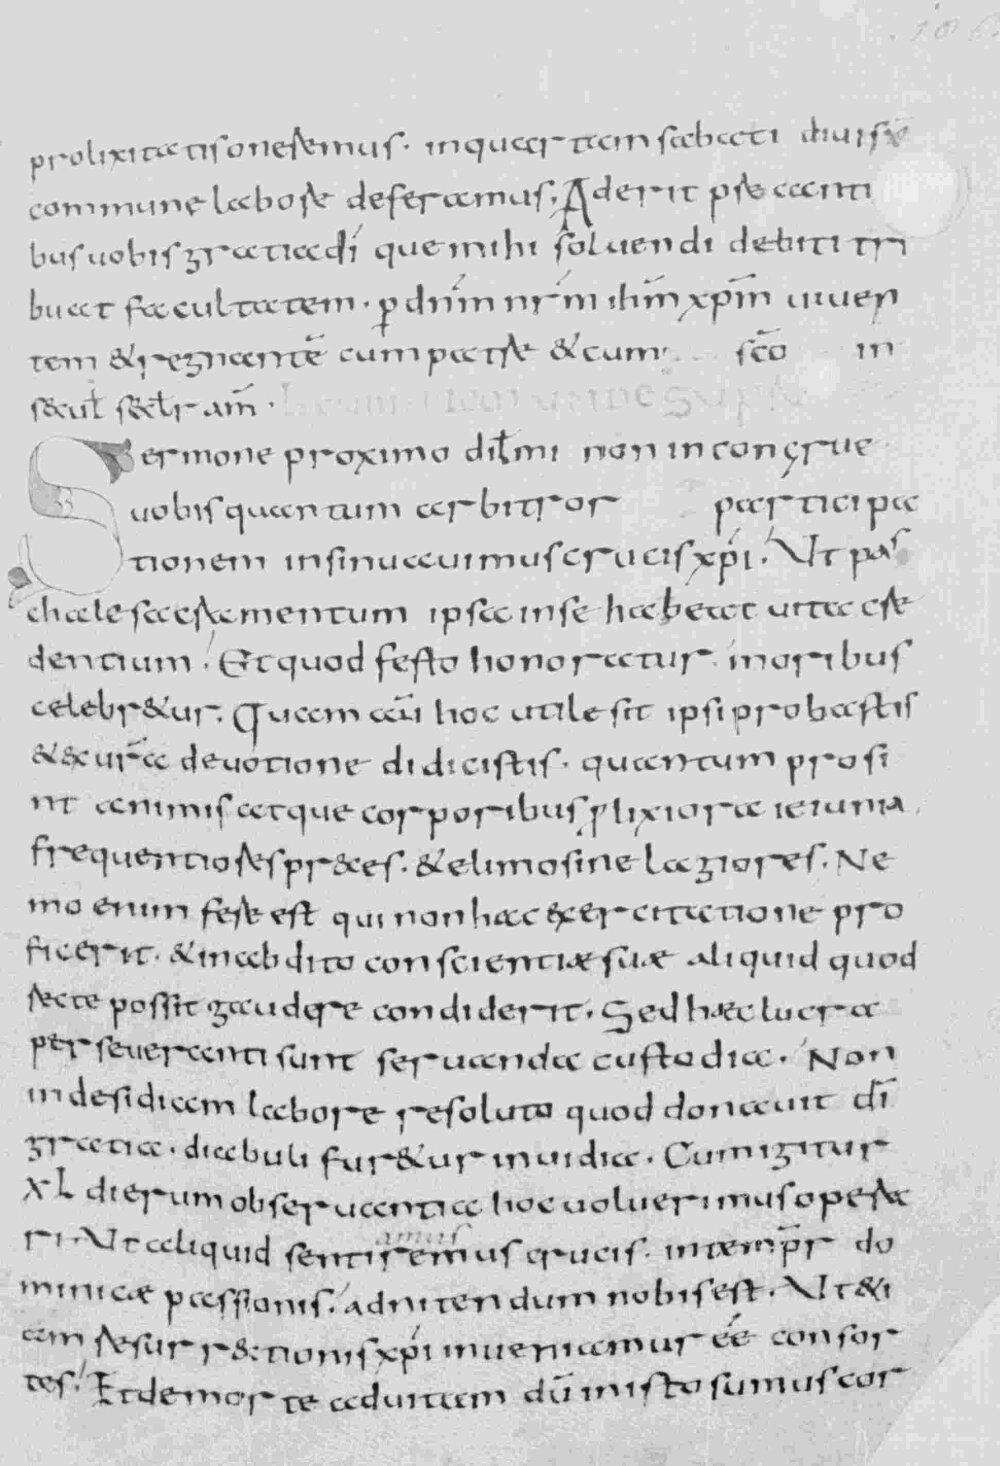 prolixitatis oneremus. in quartam sabbati diuisū
commune labore deferamus; Aderit pre canti
bus uobis gratia dī que mihi soluendi debiti tri
buat facultatem. p dn̄m nr̄m ih̄m xp̄m uiuen
tem & regnantē cum patre & cum sc̄o in
secul secl̄r am̄.
Sermone proximo dil̄mi non incongrue
uobis quantum arbitror participa
tionem insinuauimus crucis xp̄i. Ut pas
chale sacramentum ipsa in se habeat uita cre
dentium. Et quod festo honoratur. moribus
celebr&ur. Quam aūt hoc utile sit ipsi probastis
& ex ur̄a deuotione didicistis. quantum prosi
nt animis atque corporibus plixiora ieiunia.
frequentiores preces. & elimosine lagiores. Ne
mo enim fere est qui non hac exercitatione pro
ficerit. & in abdito conscientiæ suæ aliquid quod
recte possit gaudere condiderit. Sed hæc lucra
perseueranti sunt seruanda custodia. Non
in desidiam labore resoluto quod donauit dī
gratia. diabuli fur&ur inuidia. Cum igitur
XL dierum obseruantia hoc uoluerimus opera
ri. Ut aliquid sentiremus crucis. in temp̄r do
amus
minicæ passionis. adnitendum nobis est. Ut &i
am resurr&tionis xp̄i inueniamur eē consor
tes. Et de morte ad uitam dū in isto sumus cor